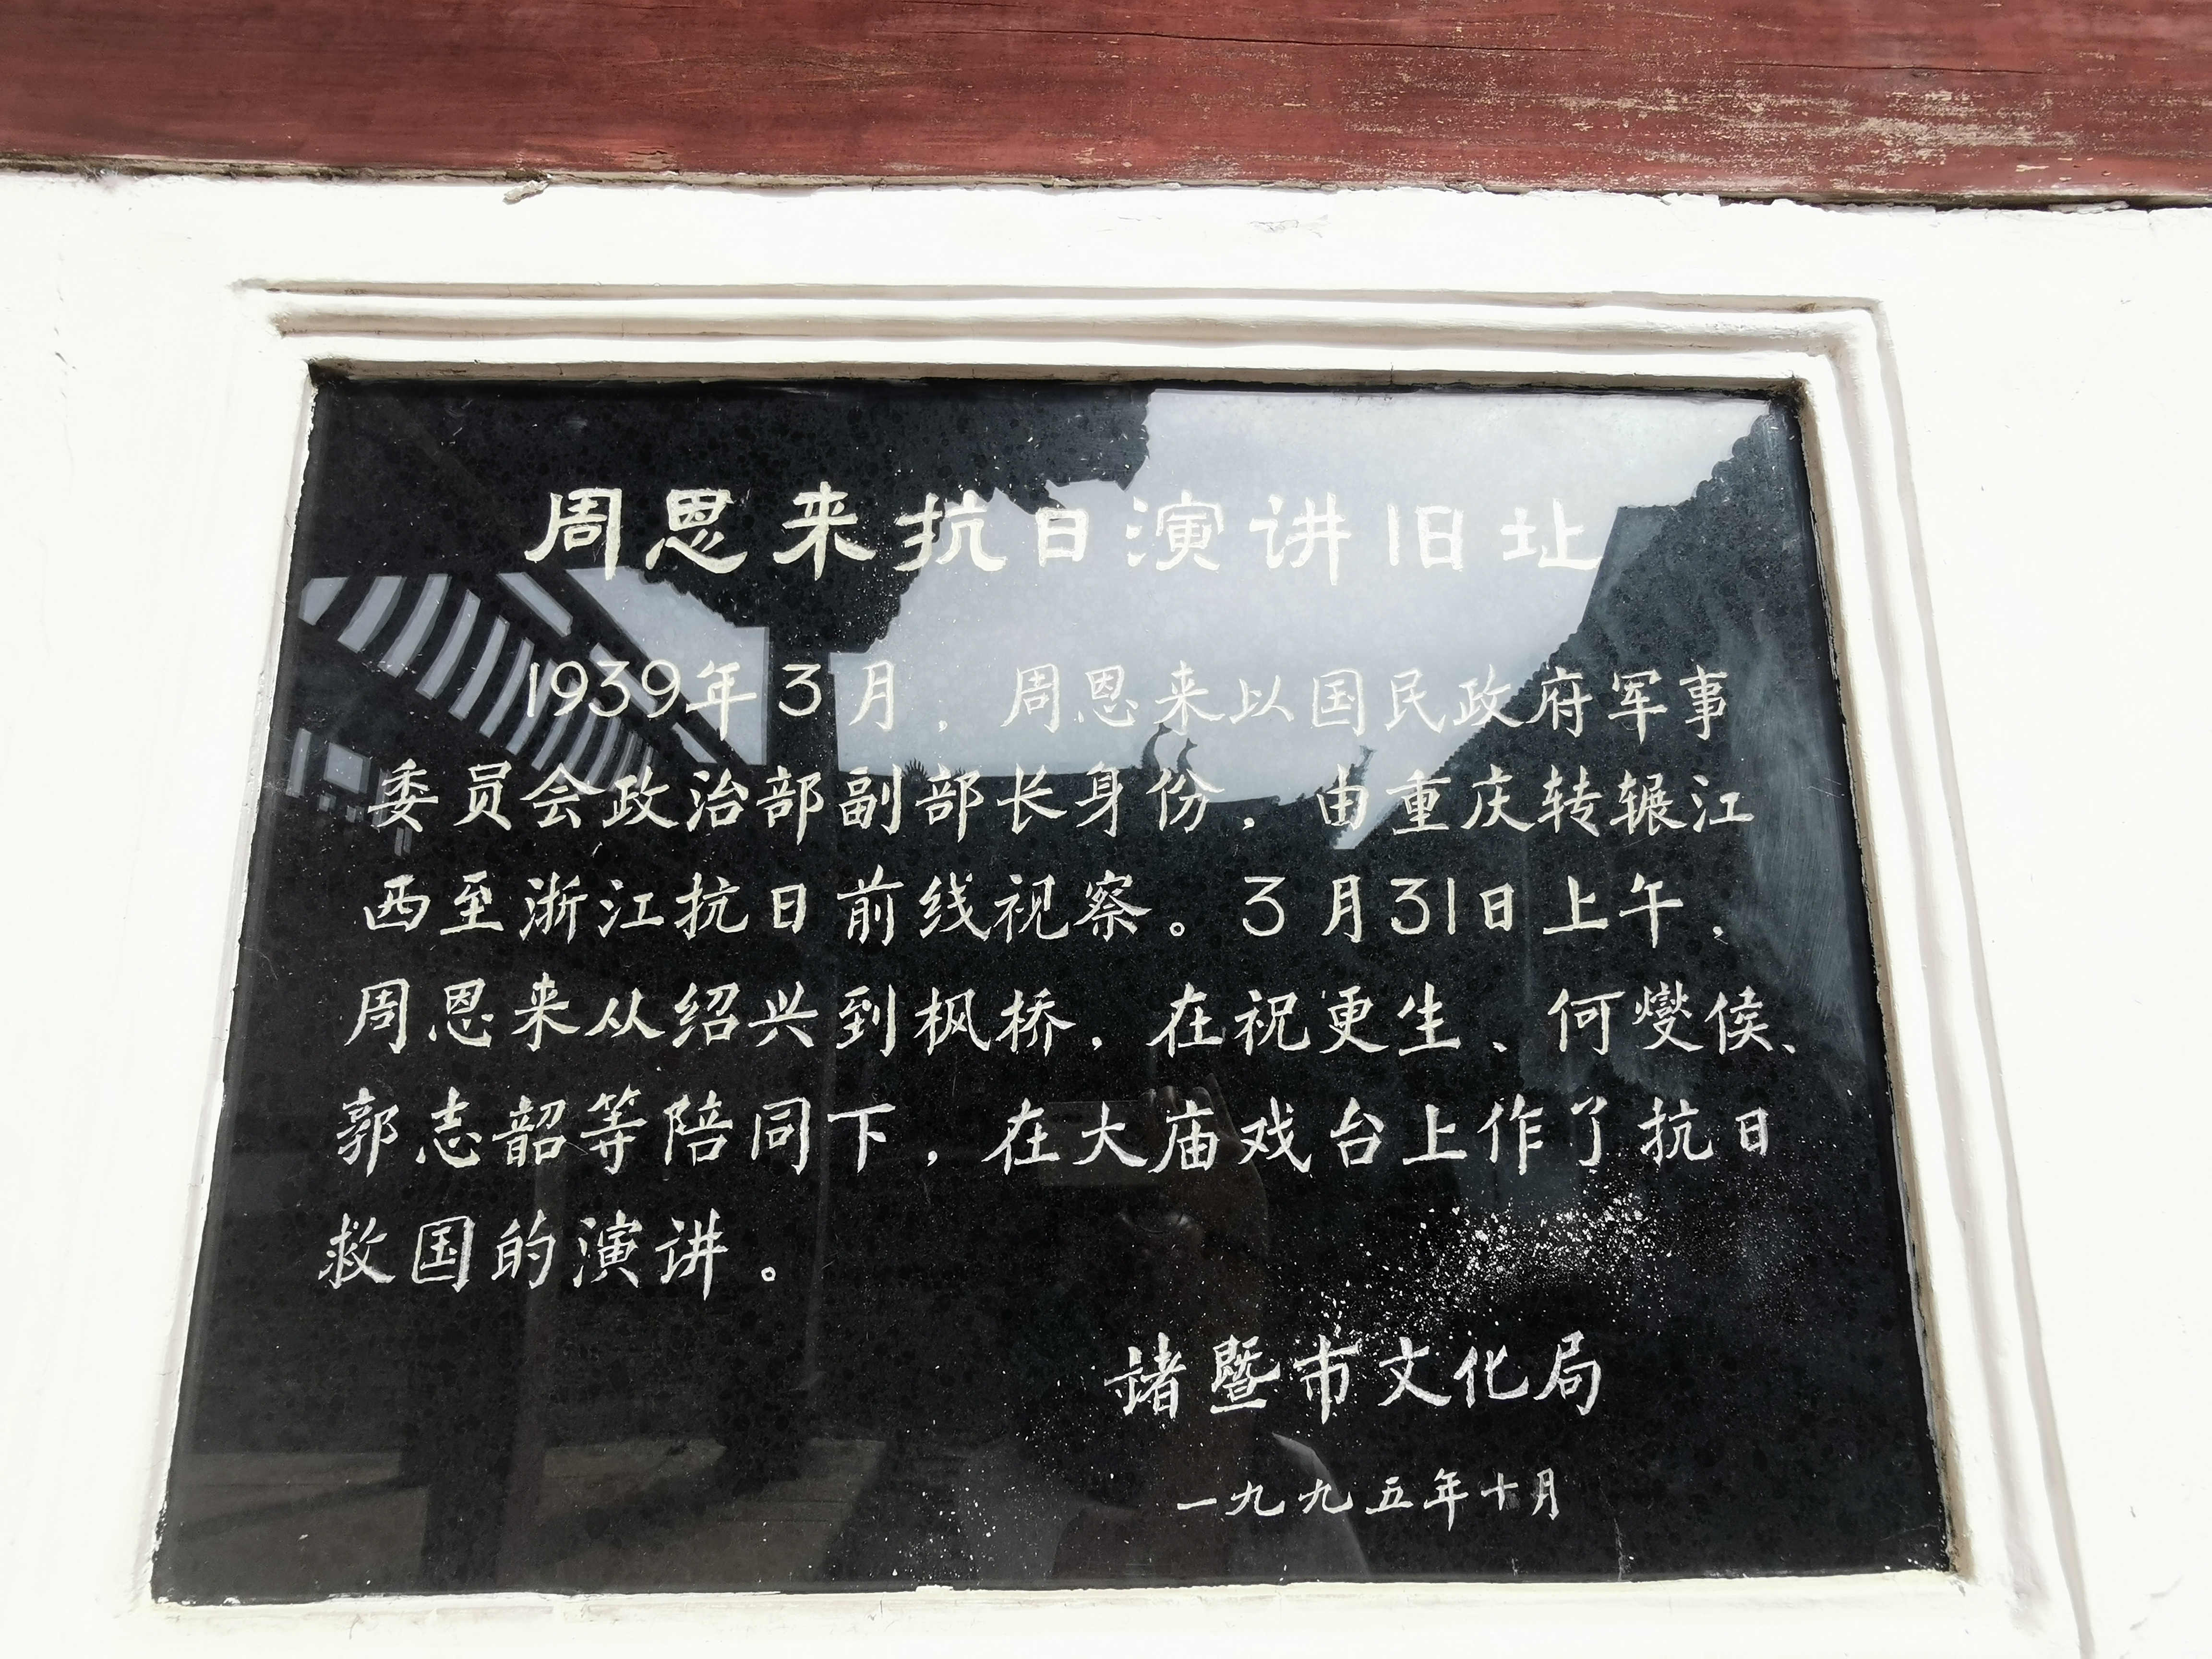 周恩来抗日演讲旧址
1939年3月，周恩来以国民政府军事
委员会政治部副部长身份，由重庆转辗江
西至浙江抗日前线视察。3月31日上午，
周恩来从绍兴到枫桥，在祝更生、何燮侯、
郭志韶等陪同下，在大庙戏台上作了抗日
救国的演讲。
诸暨市文化局
一九九五年十月